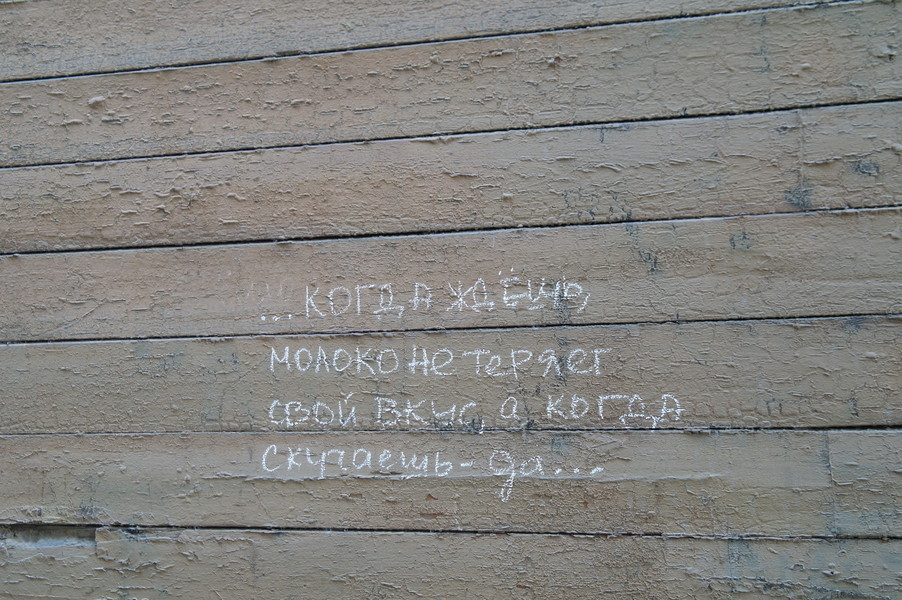 ...когда ждёшь,
молоко не теряет
свой вкус, а когда
скучаешь - да...